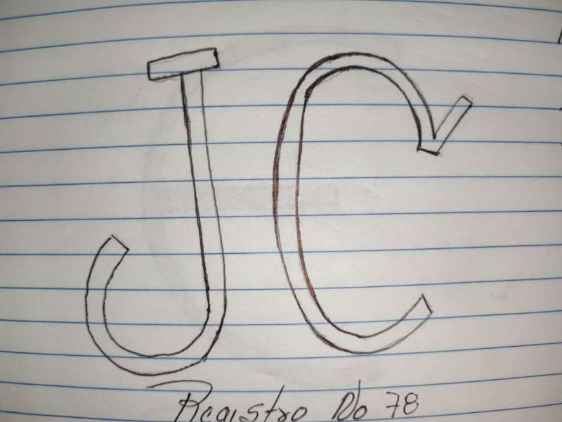 JC
Registro No 78